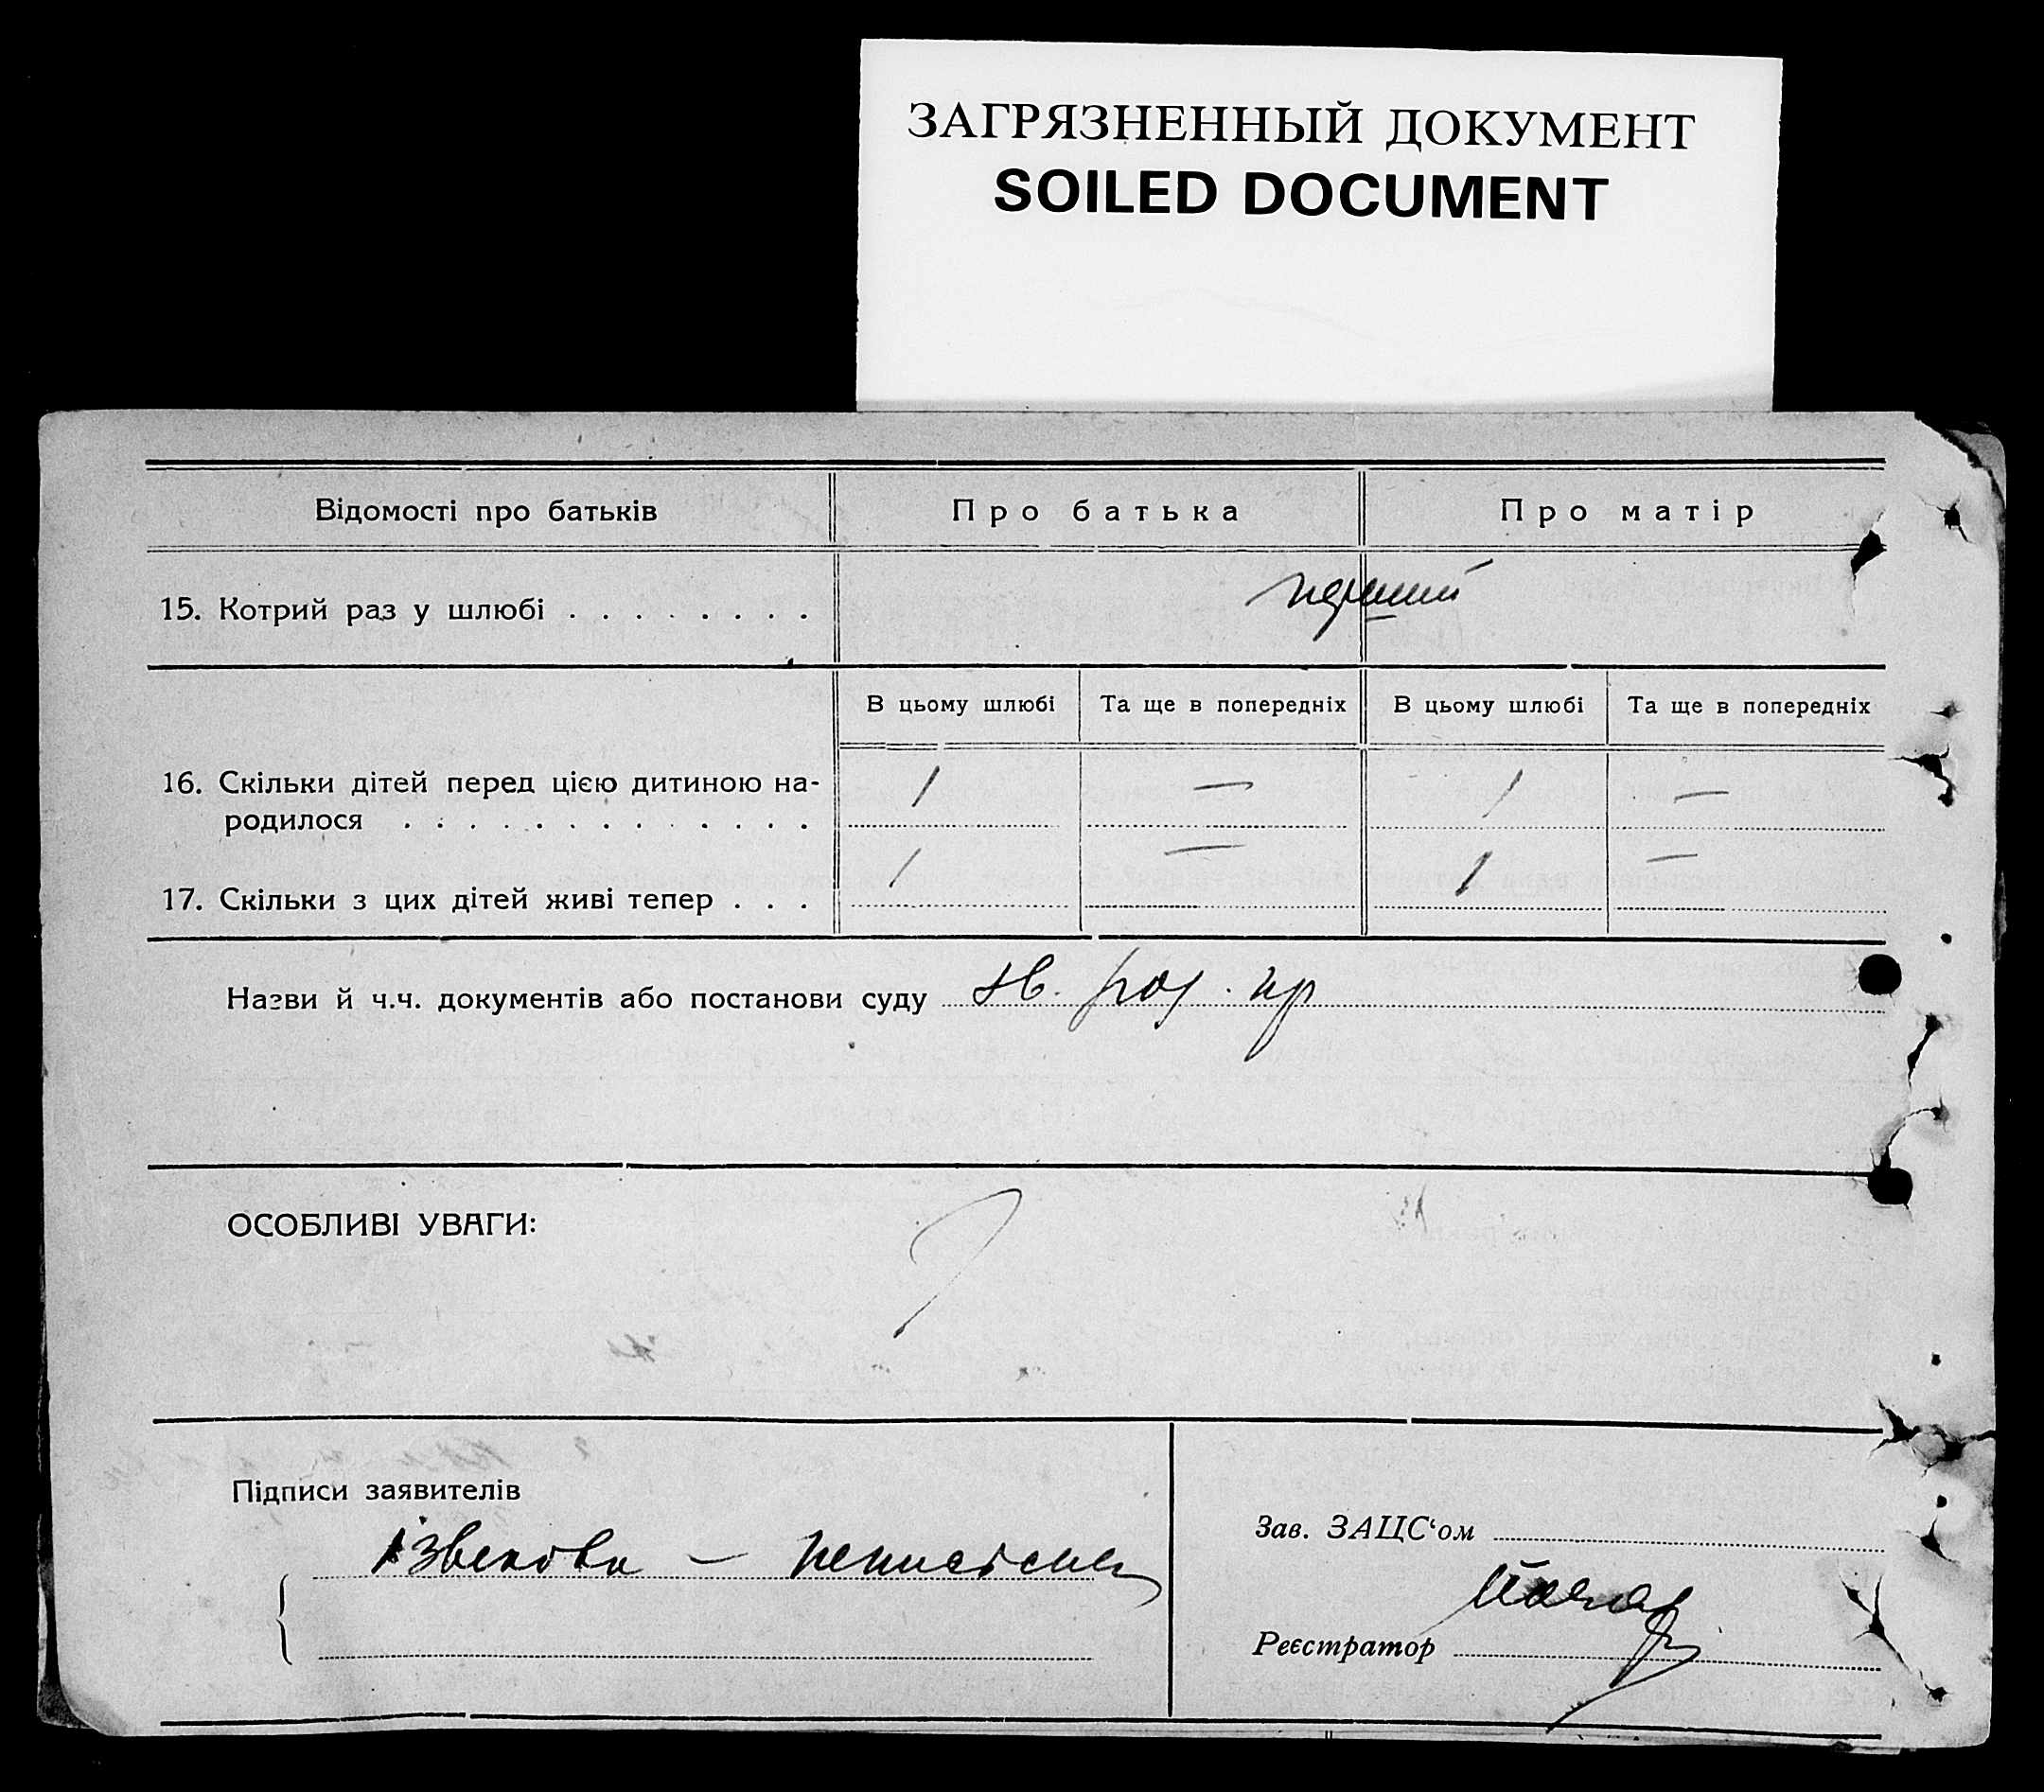 ЗАГРЯЗНЕННЫЙ ДОКУМЕНТ
SOILED DOCUMENT
Відомості про батьків Про батька Про матір
15. Котрий раз у шлюбі . . . . . . . . перший
В цьому шлюбі Та ще в попередніх В цьому шлюбі Та ще в попередніх
16. Скільки дітей перед цією дитиною на- 1 — 1 —
родилося . . . . . . . . . . . . .
17. Скільки з цих дітей живі тепер . . . 1 — 1 —
Назви й ч.ч. документів або постанови суду
ОСОБЛИВІ УВАГИ:
Підписи заявителів
Зав. ЗАЦС‘ом
Ізвекова — неписьмен
Реєстратор